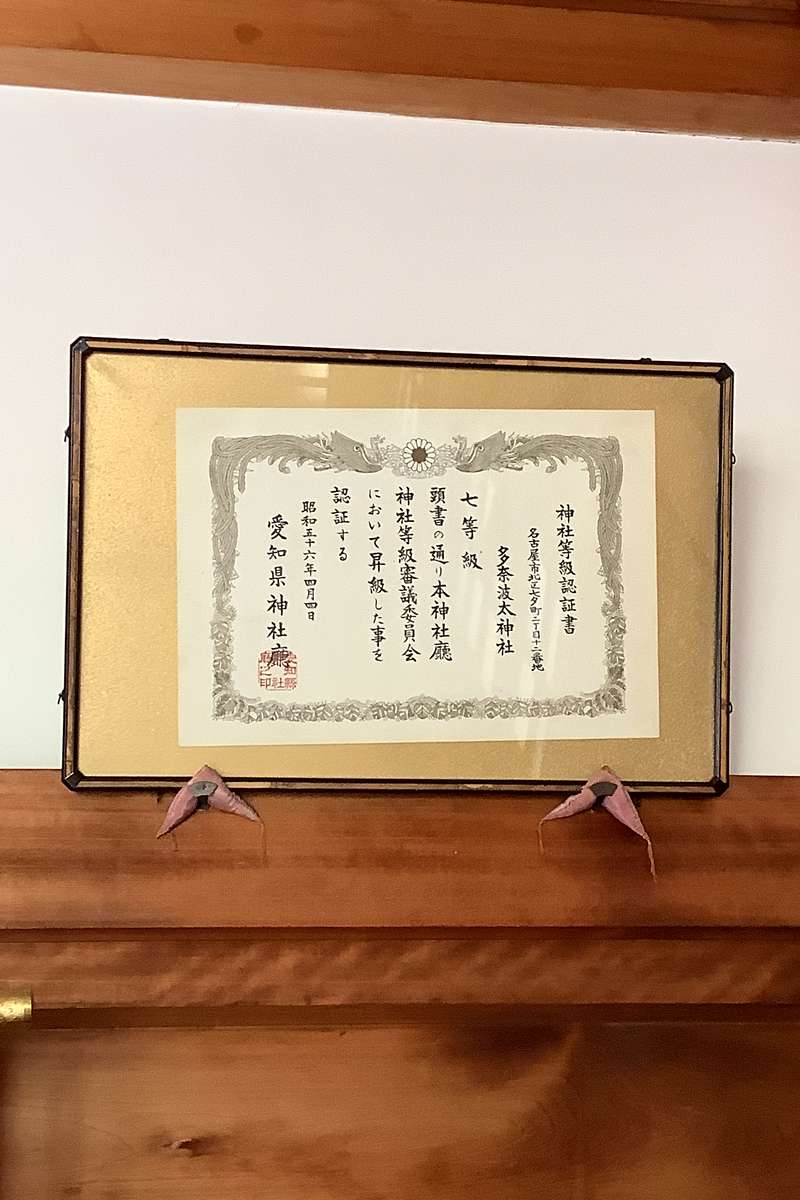 神社等級認証書
名古屋市北区七夕町二丁目十二番地
多奈波太神社
七等級
頭書の通り本神社廳
神社等級審議委員会
において昇級した事を
認証する
昭和五十六年四月四日
愛知県神社廳
愛知縣
神社
廳之印